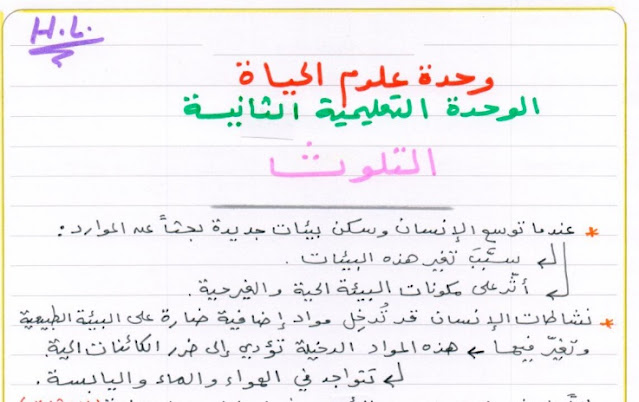 H.L.
وحدة علوم الحياة
الوحدة التعليمية الثانية
التلوث
* عندما توسع الإنسان وسكن بيئات جديدة بحثاً عن الموارد:
↲ سبَّبَ تغير هذه البيئات.
↲ أثّر على مكونات البيئة الحية والغير حية.
* نشاطات الإنسان قد تُدخِل مواد إضافية ضارة على البيئة الطبيعية
وتغيّر فيها ← هذه المواد الدخيلة تؤدي إلى ضرر الكائنات الحية
↲ تتواجد في الهواء والماء واليابسة.